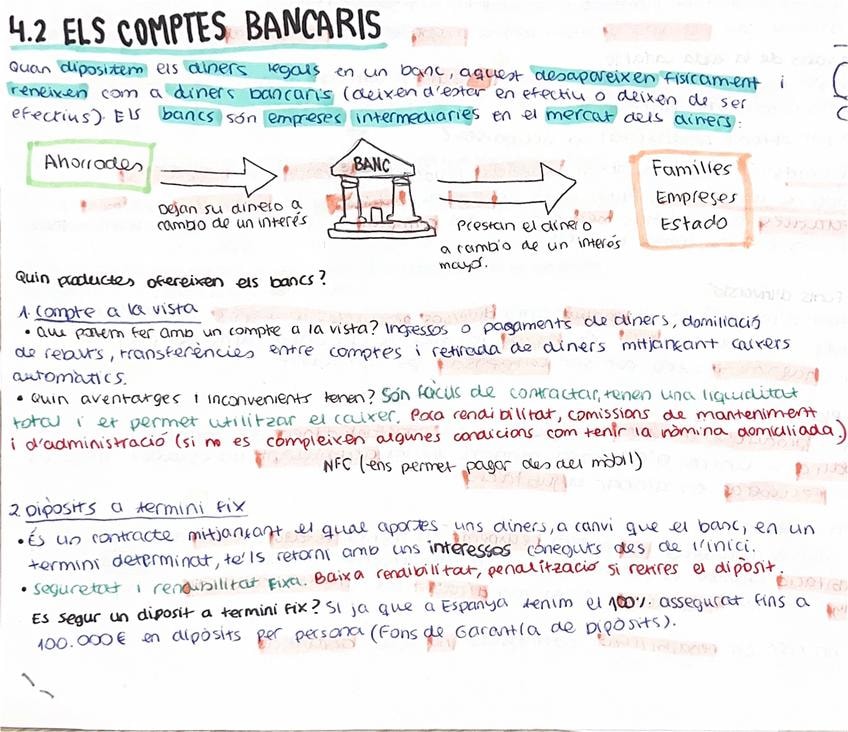 4.2 ELS COMPTES BANCARIS
Quan dipositem els diners legals en un banc, aquest desapareixen físicament i
reneixen com a diners bancaris (deixen d'estar en efectiu o deixen de ser
efectius). Els bancs són empreses intermediaries en el mercat dels diners:
Ahorrodes
Dejan su dinero a
cambio de un interés
BANC
Prestan el dinero
a cambio de un interés
mayor.
Famílies
Empreses
Estado
Quin productes ofereixen els bancs?
1. Compte a la vista
• Que podem fer amb un compte a la vista? Ingressos o pagaments de diners, domiliació
de rebuts, transferències entre comptes i retirada de diners mitjançant caixers
automàtics.
• Quin aventatges i inconvenients tenen? Són fàcils de contractar, tenen una liquiditat
total i et permet utilitzar el caixer. Poca rendibilitat, comissions de manteniment
i d'administració (si no es compleixen algunes condicions com tenir la nòmina domiciliada.)
NFC (tens permet pagar des del mòbil)
2. Dipòsits a termini fix
• És un contracte mitjançant el qual aportes uns diners, a canvi que el banc, en un
termini determinat, te'ls retorni amb uns interessos coneguts des de l'inici.
• Seguretat i rendibilitat fixa. Baixa rendibilitat, penalització si retires el dipòsit.
Es segur un diposit a termini fix? Si ja que a Espanya tenim el 100% assegurat fins a
100.000€ en dipòsits per persona (Fons de Garantía de Dipòsits).